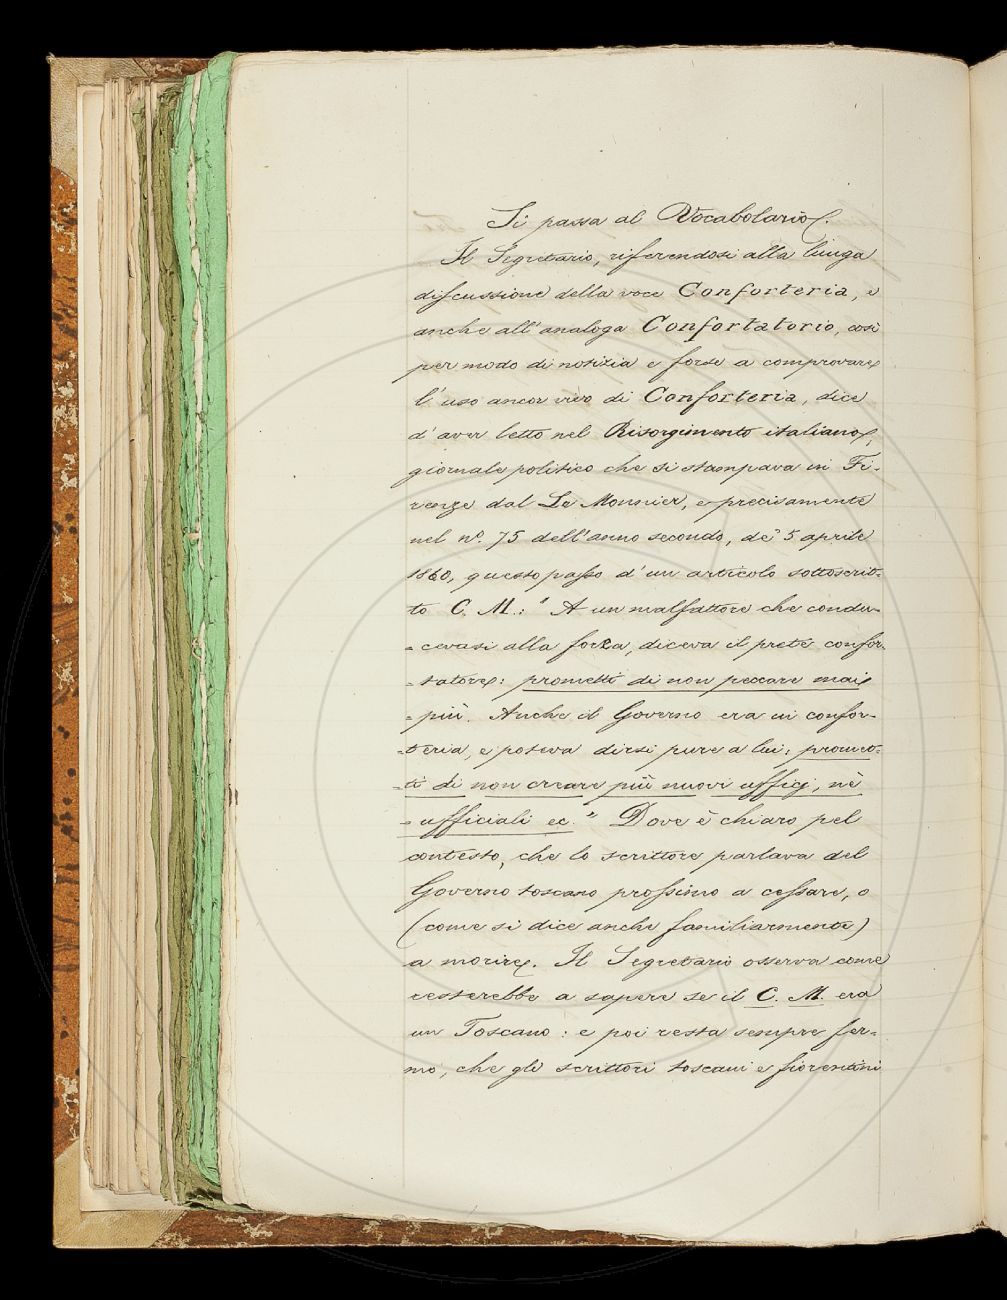 Si passa al Vocabolario.
Il Segretario, riferendosi alla lunga
discussione della voce Conforteria, e
anche all'analoga Confortatorio, così
per modo di notizia e forse a comprovare
l'uso ancor vivo di Conforteria, dice
d'aver letto nel Risorgimento italiano,
giornale politico che si stampava in Fi-
renze dal Le Monnier, e precisamente
nel n.º 75 dell'anno secondo, de' 5 aprile
1860, questo passo d'un articolo sottoscrit-
to C. M.: "A un malfattore che condu-
"cevasi alla forca, diceva il prete confor-
"tatore: prometti di non peccare mai
"più. Anche il Governo era in confor-
"teria, e poteva dirsi pure a lui: promet-
"ti di non creare più nuovi ufficj, nè
"ufficiali ec." Dove è chiaro pel
contesto, che lo scrittore parlava del
Governo toscano prossimo a cessare, o
(come si dice anche familiarmente)
a morire. Il Segretario osserva come
resterebbe a sapere se il C. M. era
un Toscano: e poi resta sempre fer-
mo, che gli scrittori toscani e fiorentini